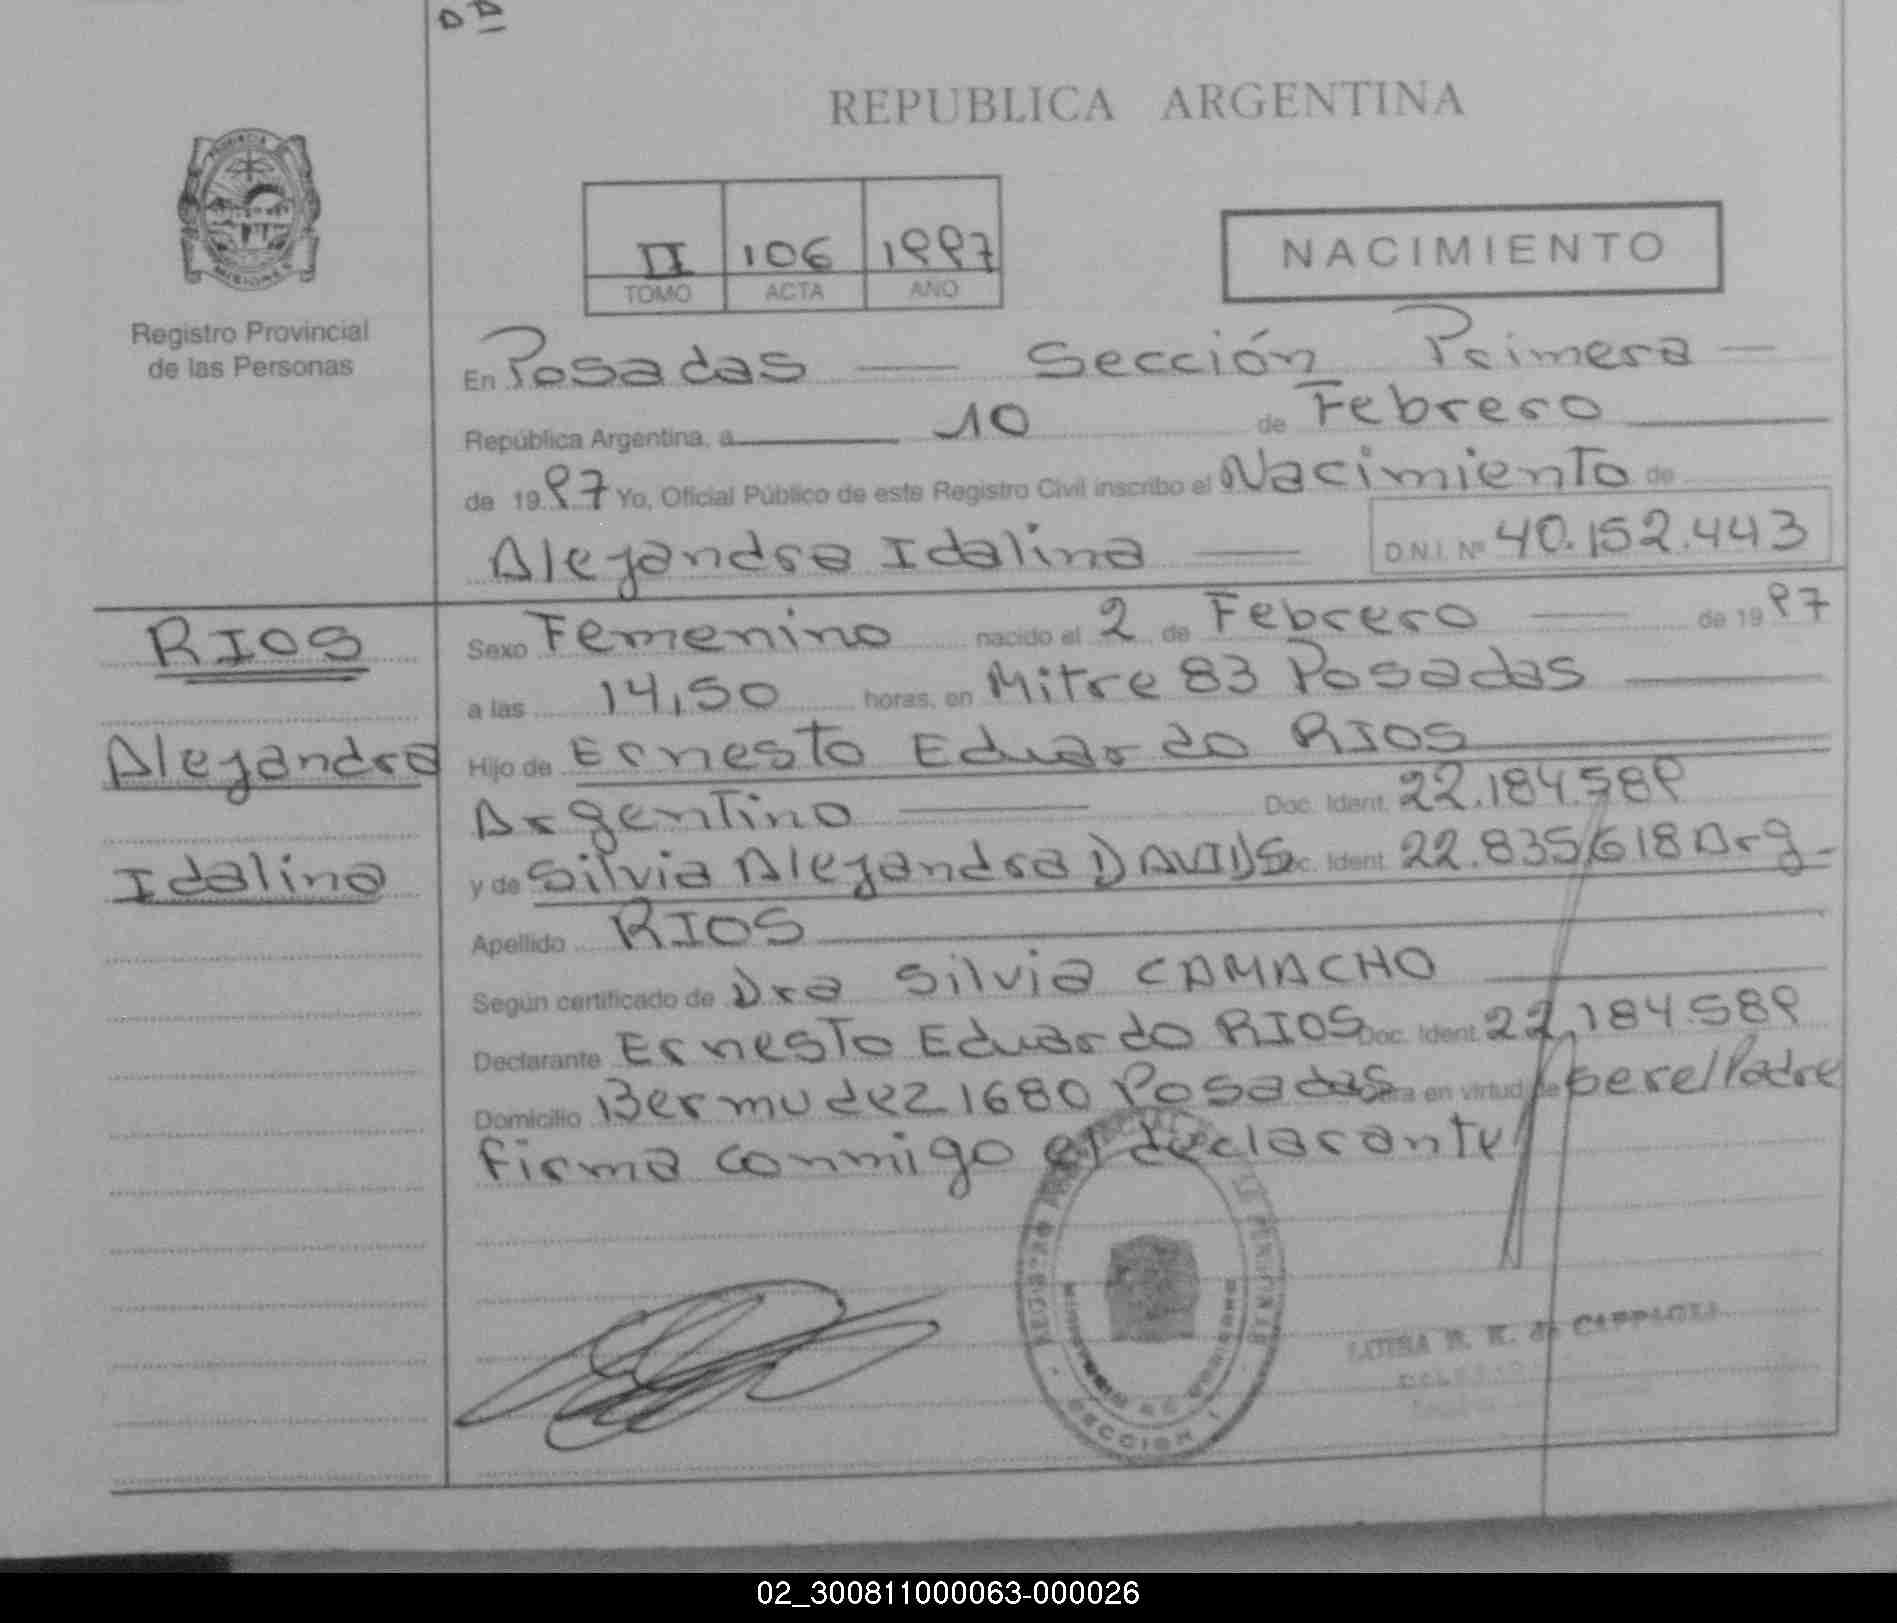 REPUBLICA ARGENTINA
PROVINCIA DE
MISIONES
Registro Provincial
de las Personas
II 106 1997
TOMO ACTA AÑO
NACIMIENTO
En Posadas — Sección Primera —
República Argentina, a 10 de Febrero
de 1997 Yo, Oficial Público de este Registro Civil inscribo el Nacimiento de
Alejandra Idalina — D.N.I. Nº 40.152.443
RIOS
Alejandra
Idalina
Sexo Femenino nacido el 2 de Febrero — de 1997
a las 14,50 horas, en Mitre 83 Posadas
Hijo de Ernesto Eduardo RIOS
Argentino — Doc. Ident. 22.184.589
y de Silvia Alejandra DAVIDS Doc. Ident. 22.835.618 Arg.
Apellido RIOS
Según certificado de Dra Silvia CAMACHO
Declarante Ernesto Eduardo RIOS Doc. Ident. 22.184.589
Domicilio Bermudez 1680 Posadas en virtud de ser el Padre
firma conmigo el declarante
SECCION 1
LUISA
02_300811000063-000026